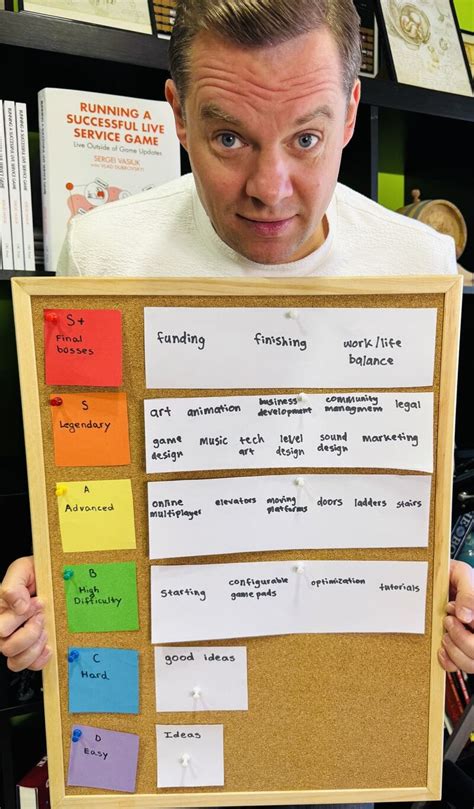 RUNNING A
SUCCESSFUL LIVE
SERVICE GAME
Live Outside of Game Updates
SERGEI VASIUK
with VLAD DUBROVSKYI
S+
Final
bosses
funding finishing work/life
balance
S
Legendary
art animation business
development community
managment legal
game
design music tech
art level
design sound
design marketing
A
Advanced
online
multiplayer elevators moving
platforms doors ladders stairs
B
High
Difficulty
Starting configurable
gamepads optimization tutorials
C
Hard
good ideas
D
Easy
Ideas